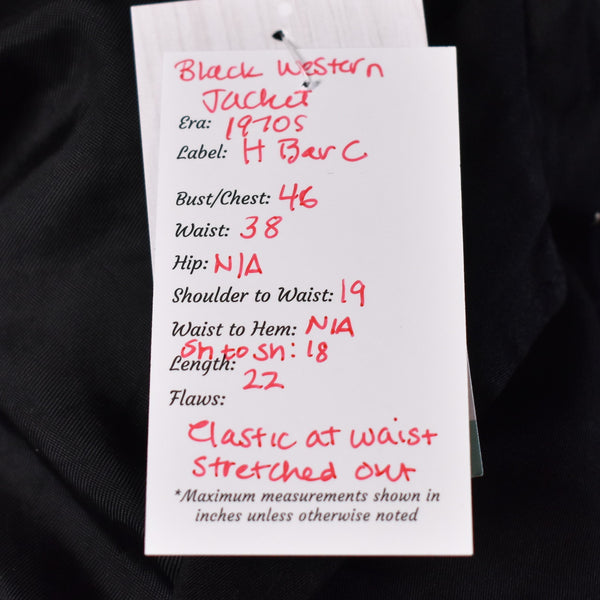 Black Western
Jacket
Era: 1970s
Label: H Bar C
Bust/Chest: 46
Waist: 38
Hip: N/A
Shoulder to Waist: 19
Waist to Hem: N/A
Sh to sh: 18
Length: 22
Flaws:
Elastic at waist
stretched out
*Maximum measurements shown in
inches unless otherwise noted